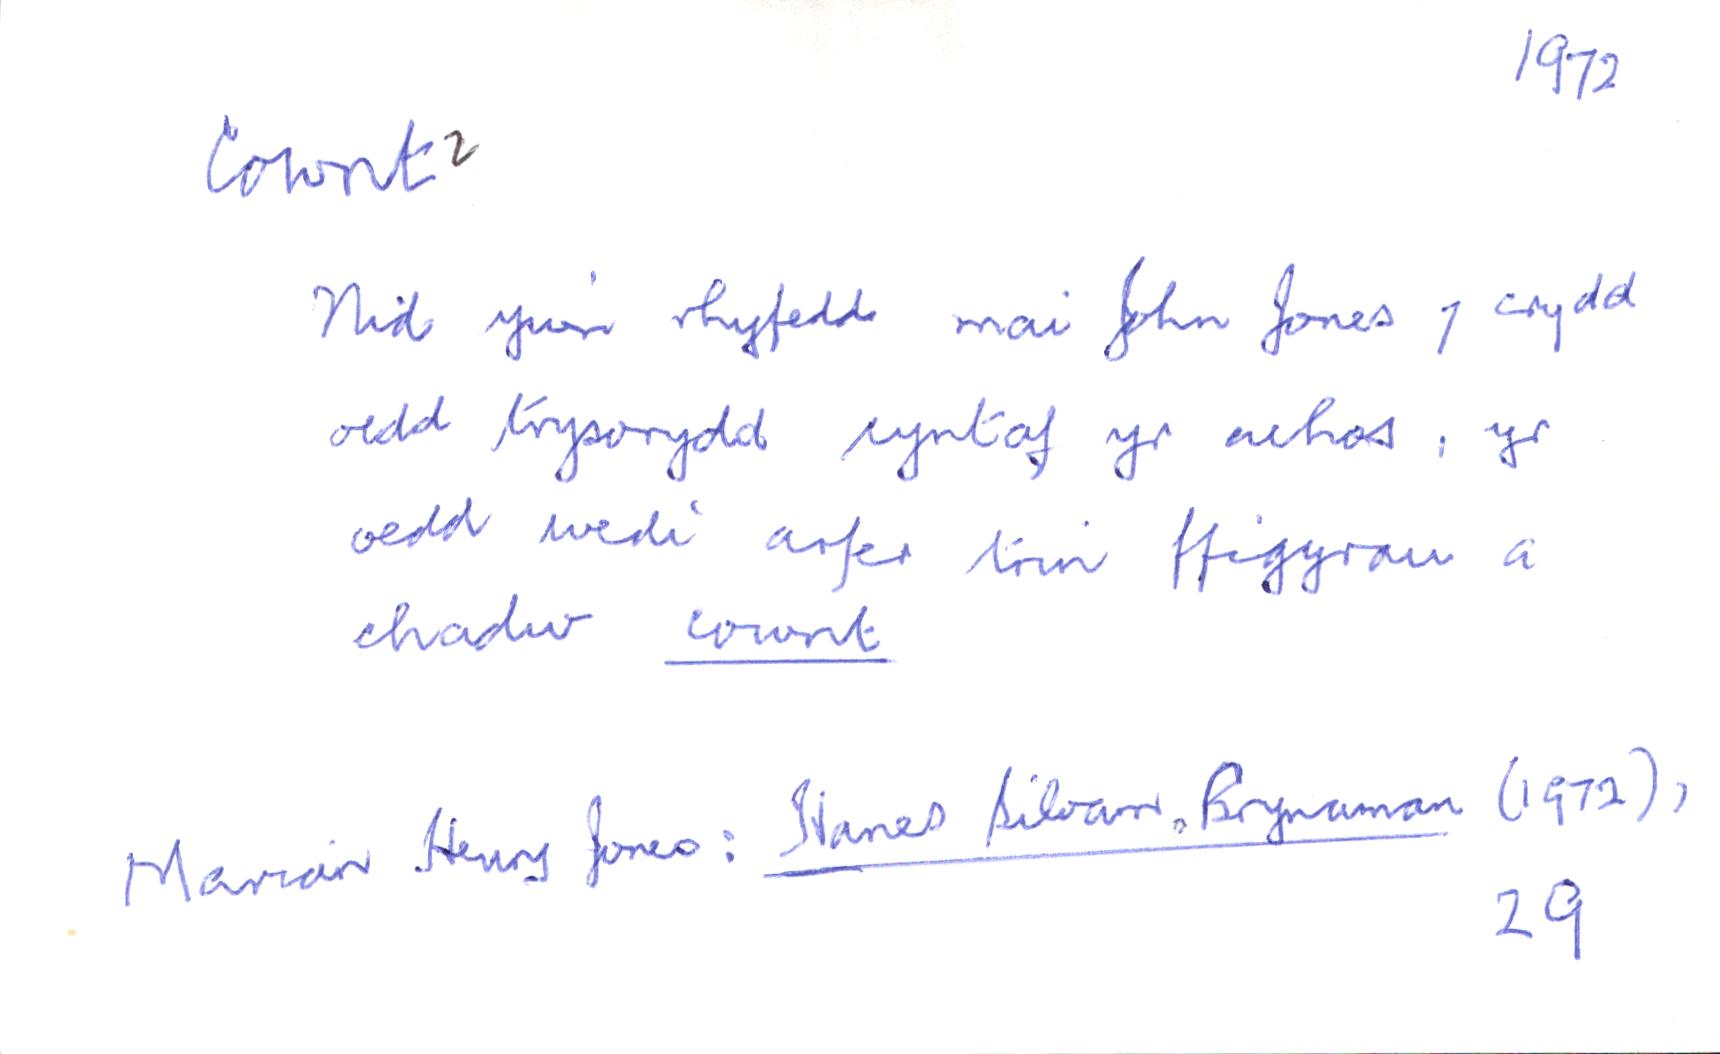 1972
Cownt²
Nid yw'n rhyfedd mai John Jones y crydd
oedd trysorydd cyntaf yr achos, yr
oedd wedi arfer trin ffigyrau a
chadw cownt
Marian Henry Jones: Hanes Siloam, Brynaman (1972),
29